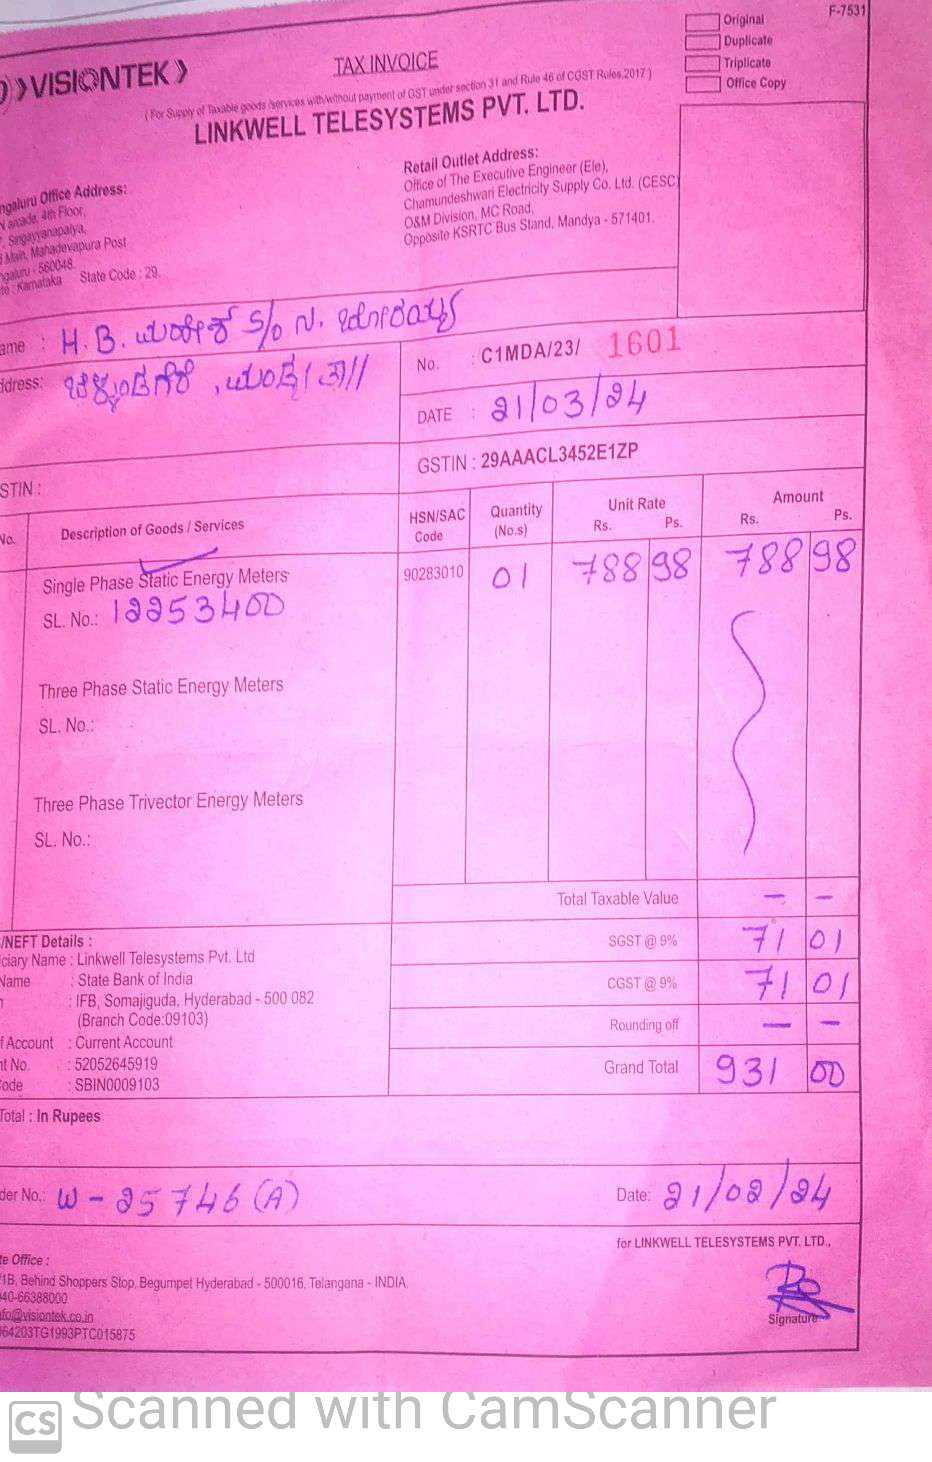 F-7531
Original
Duplicate
Triplicate
Office Copy
VISIONTEK
TAX INVOICE
( For Supply of Taxable goods /services with/without payment of GST under section 31 and Rule 46 of CGST Rules,2017 )
LINKWELL TELESYSTEMS PVT. LTD.
Office Address:
arcade, 4th Floor,
Singayyanapalya,
Main, Mahadevapura Post
- 560048.
: Karnataka State Code : 29.
Retail Outlet Address:
Office of The Executive Engineer (Ele),
Chamundeshwari Electricity Supply Co. Ltd. (CESC)
O&M Division, MC Road,
Opposite KSRTC Bus Stand, Mandya - 571401.
: H. B. S/o ಎ.
No. : C1MDA/23/ 1601
DATE : 21/03/24
GSTIN : 29AAACL3452E1ZP
STIN :
No. Description of Goods / Services HSN/SAC Code Quantity (No.s) Unit Rate Rs. Ps. Amount Rs. Ps.
Single Phase Static Energy Meters 90283010 01 788 98 788 98
SL. No.: 12253400
Three Phase Static Energy Meters
SL. No.:
Three Phase Trivector Energy Meters
SL. No.:
Total Taxable Value — —
SGST @ 9% 71 01
CGST @ 9% 71 01
Rounding off — —
Grand Total 931 00
/NEFT Details :
ciary Name : Linkwell Telesystems Pvt. Ltd
Name : State Bank of India
: IFB, Somajiguda, Hyderabad - 500 082
(Branch Code:09103)
f Account : Current Account
nt No. : 52052645919
ode : SBIN0009103
Total : In Rupees
der No.: W - 25746 (A) Date: 21/02/24
for LINKWELL TELESYSTEMS PVT. LTD.,
te Office :
1B, Behind Shoppers Stop, Begumpet Hyderabad - 500016, Telangana - INDIA
40-66388000
nfo@visiontek.co.in
64203TG1993PTC015875
Signature
CS Scanned with CamScanner